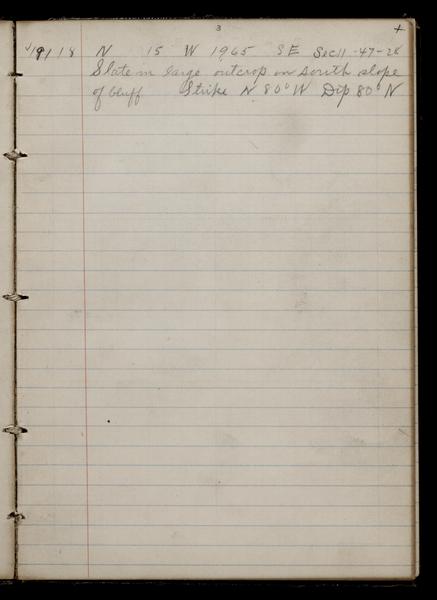 3 +
√19118 N 15 W 1965 S E Sec 11-47-28
Slate in large outcrop on south slope
of bluff Strike N 80° W Dip 80° N